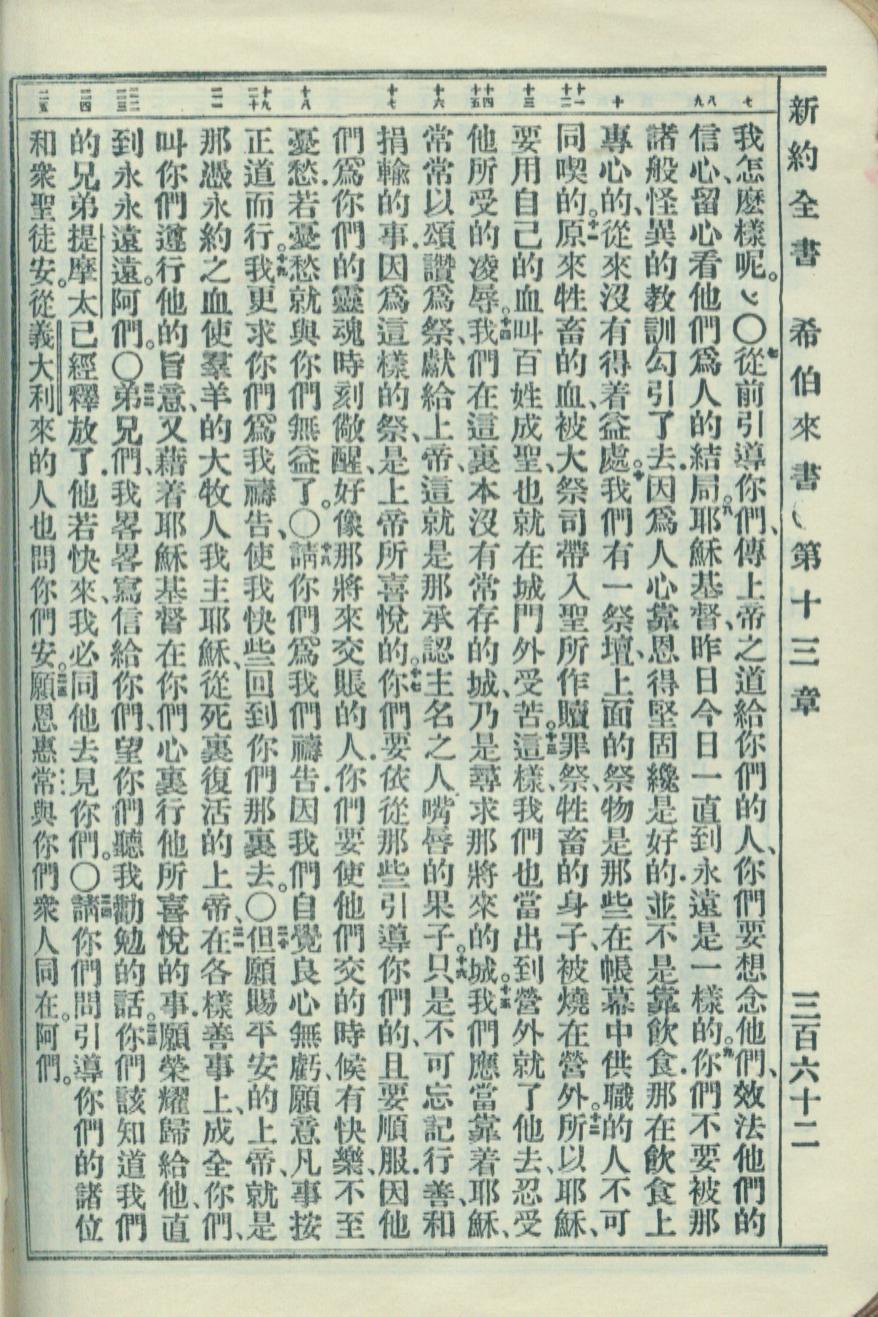 新約全書　希伯來書　第十三章　三百六十二
七
八
九
十
十一
十二
十三
十四
十五
十六
十七
十八
十九
二十
二一
二二
二三
二四
二五
我怎麼樣呢。〇七從前引導你們、傳上帝之道給你們的人、你們要想念他們、效法他們的
信心、留心看他們爲人的結局。八耶穌基督、昨日今日一直到永遠是一樣的。九你們不要被那
諸般怪異的教訓勾引了去、因爲人心靠恩得堅固纔是好的、並不是靠飲食、那在飲食上
專心的、從來沒有得着益處。十我們有一祭壇、上面的祭物、是那些在帳幕中供職的人不可
同喫的。十一原來牲畜的血、被大祭司帶入聖所作贖罪祭、牲畜的身子、被燒在營外。十二所以耶穌、
要用自己的血叫百姓成聖、也就在城門外受苦。十三這樣、我們也當出到營外就了他去、忍受
他所受的凌辱。十四我們在這裏本沒有常存的城、乃是尋求那將來的城。十五我們應當靠着耶穌、
常常以頌讚爲祭、獻給上帝、這就是那承認主名之人嘴唇的果子。十六只是不可忘記行善和
捐輸的事、因爲這樣的祭、是上帝所喜悅的。十七你們要依從那些引導你們的、且要順服、因他
們爲你們的靈魂時刻儆醒、好像那將來交賬的人、你們要使他們交的時候有快樂、不至
憂愁、若憂愁就與你們無益了。〇十八請你們爲我們禱告、因我們自覺良心無虧、願意凡事按
正道而行。十九我更求你們爲我禱告、使我快些回到你們那裏去。〇二十但願賜平安的上帝、就是
那憑永約之血、使羣羊的大牧人我主耶穌、從死裏復活的上帝、二一在各樣善事上、成全你們、
叫你們遵行他的旨意、又藉着耶穌基督在你們心裏行他所喜悅的事、願榮耀歸給他、直
到永永遠遠。阿們。〇二二弟兄們、我畧畧寫信給你們、望你們聽我勸勉的話。二三你們該知道我們
的兄弟提摩太、已經釋放了、他若快來、我必同他去見你們。〇二四請你們問引導你們的諸位
和衆聖徒安、從義大利來的人也問你們安。二五願恩惠常與你們衆人同在。阿們。